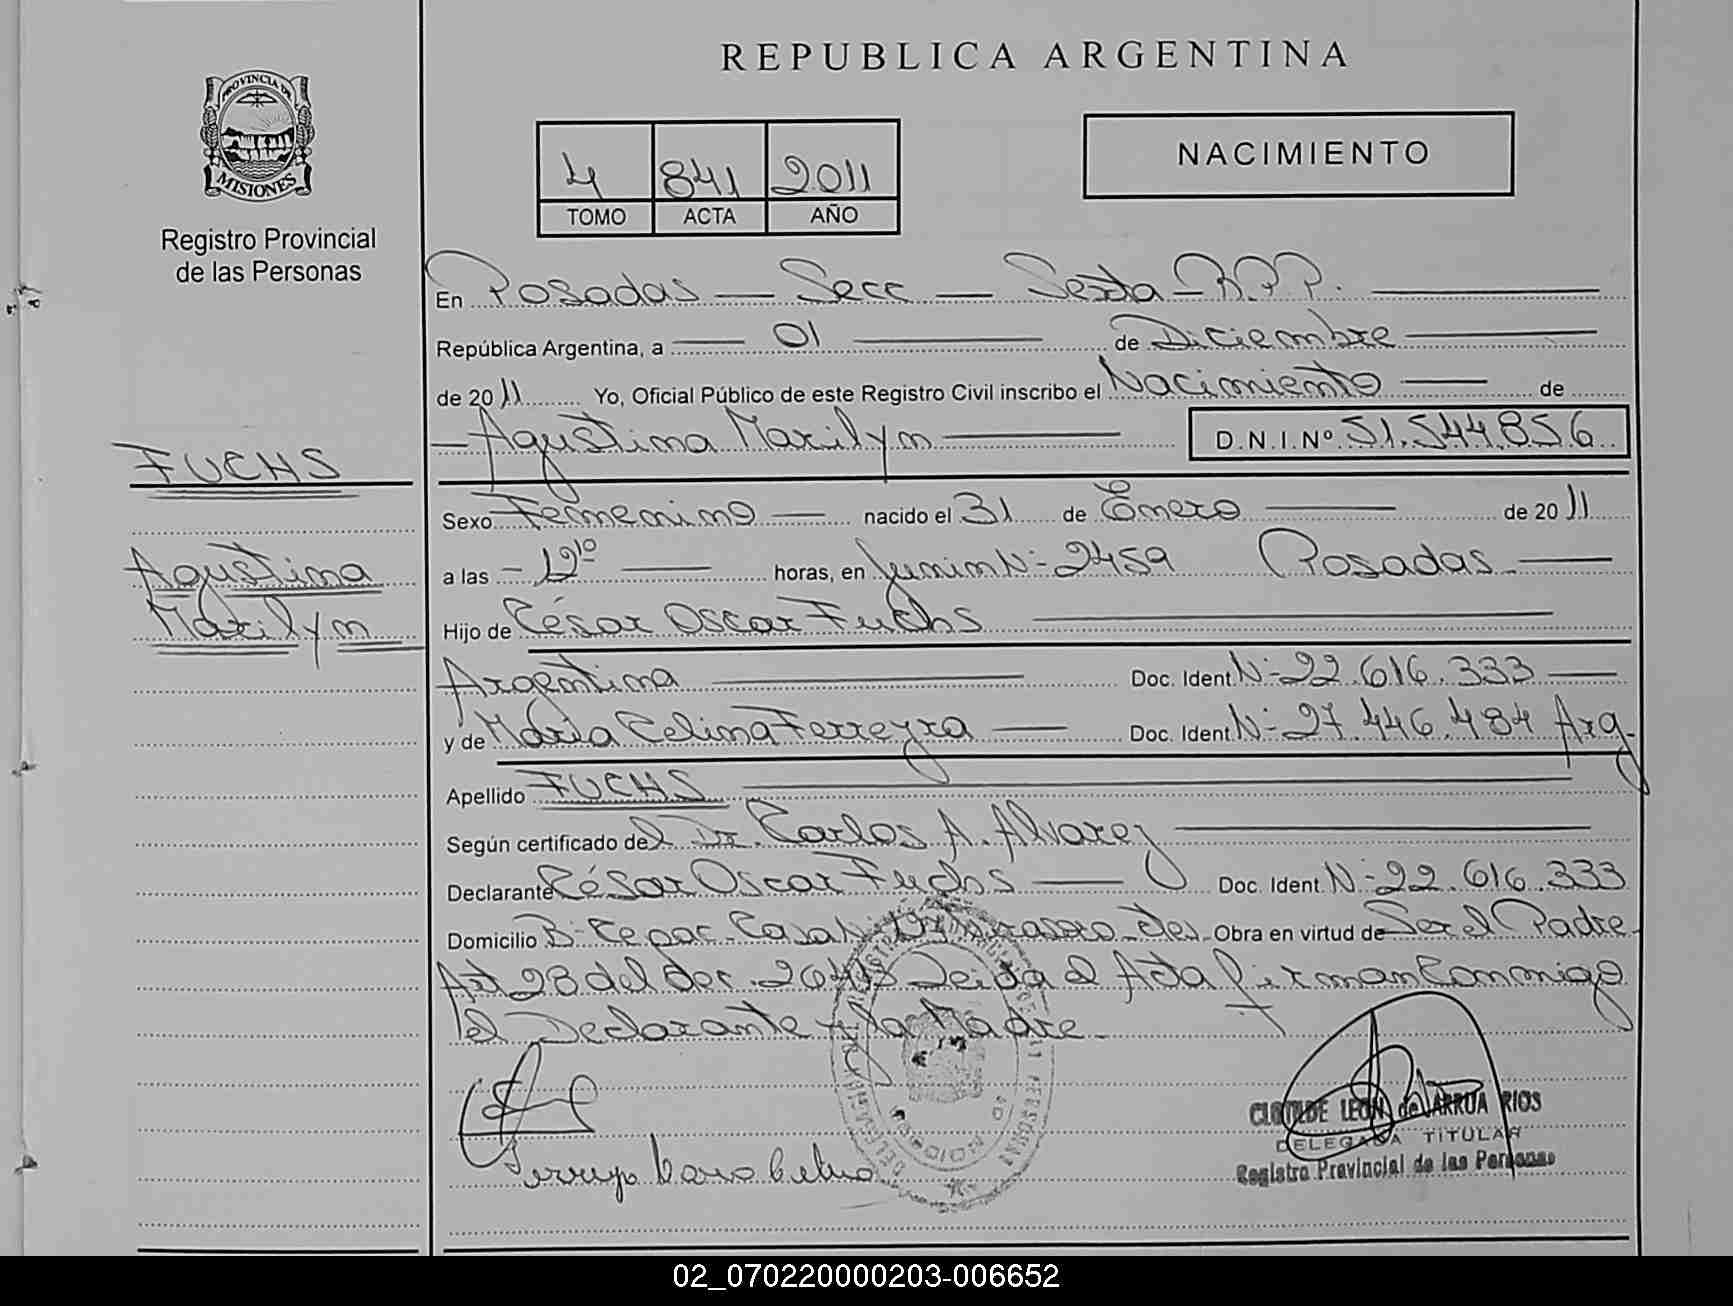 REPUBLICA ARGENTINA
PROVINCIA DE
MISIONES
Registro Provincial
de las Personas
4 841 2011
TOMO ACTA AÑO
NACIMIENTO
En Posadas — Secc — Sexta - R.P.P.
República Argentina, a 01 de Diciembre
de 2011 Yo, Oficial Público de este Registro Civil inscribo el Nacimiento de
Agustina Marilyn D.N.I.Nº 51.544.856
FUCHS
Agustina
Marilyn
Sexo Femenino nacido el 31 de Enero de 2011
a las 12¹⁰ horas, en Junin N- 2459 Posadas
Hijo de César Oscar Fuchs
Argentina Doc. Ident. N- 22.616.333
y de María Celina Ferreyra Doc. Ident. N- 27.446.484 Arg.
Apellido FUCHS
Según certificado del Dr. Carlos A. Alvarez
Declarante César Oscar Fuchs Doc. Ident. N- 22.616.333
Domicilio B- Cepar Casa Obra en virtud de Ser el Padre
Art 28 del dec. Leida el Acta firman Conmigo
el Declarante y la Madre.
CLOTILDE LEON de ARRUA RIOS
DELEGADA TITULAR
Registro Provincial de las Personas
02_070220000203-006652